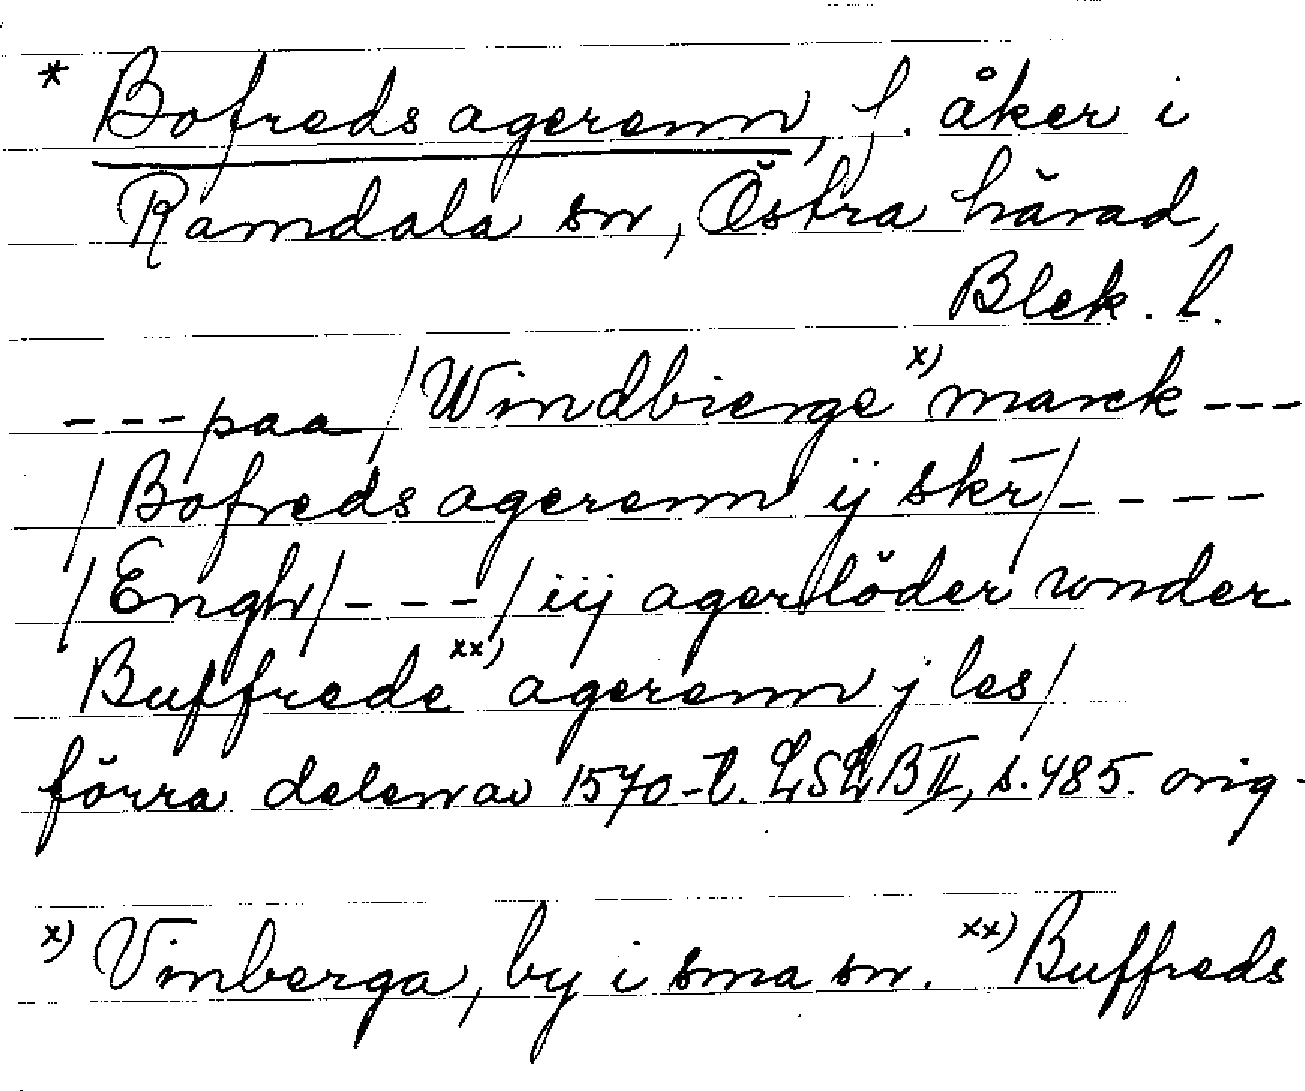 * Bofreds agerenn, f. åker i
Ramdala sn, Östra härad,
Blek. l.
---paa /Windbierge x) marck ---
/Bofreds agerenn ij skr̄/----
/Engh/---/iij agerlöder wnder
Buffrede xx) agerenn j les/
förra delen av 1570-t. LSLB II, s. 485. orig-
x) Vinberga, by i sma sn. xx) Buffreds